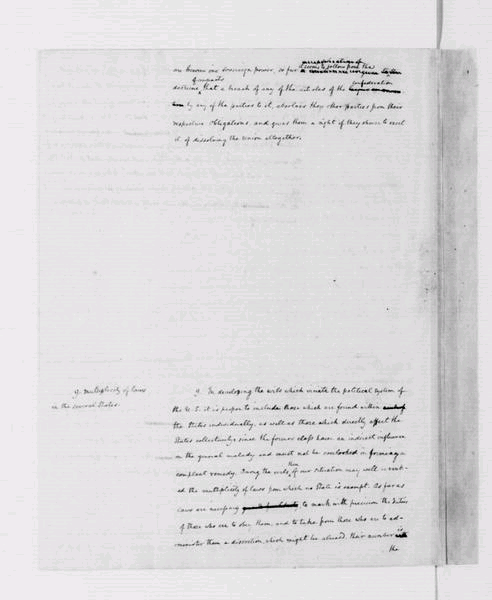 it seems to follow from the
are become one sovereign power, so far
of compacts
confederation
doctrine that a breach of any of the articles of the
by any of the parties to it, absolves the other parties from their
respective obligations, and gives them a right if they chuse to exert
it of dissolving the Union altogether.
9. Multiplicity of laws
in the several States.
9. In developing the evils which viciate the political system of
the U. S. it is proper to include those which are found within
the States individually, as well as those which directly affect the
States collectively, since the former class have an indirect influence
on the general malady and must not be overlooked in forming a
compleat remedy. Among the evils then of our situation may well be rank-
ed the multiplicity of laws from which no State is exempt. As far as
laws are necessary to mark with precision the duties
of those who are to obey them, and to take from those who are to ad-
minister them a discretion, which might be abused, their number is
the